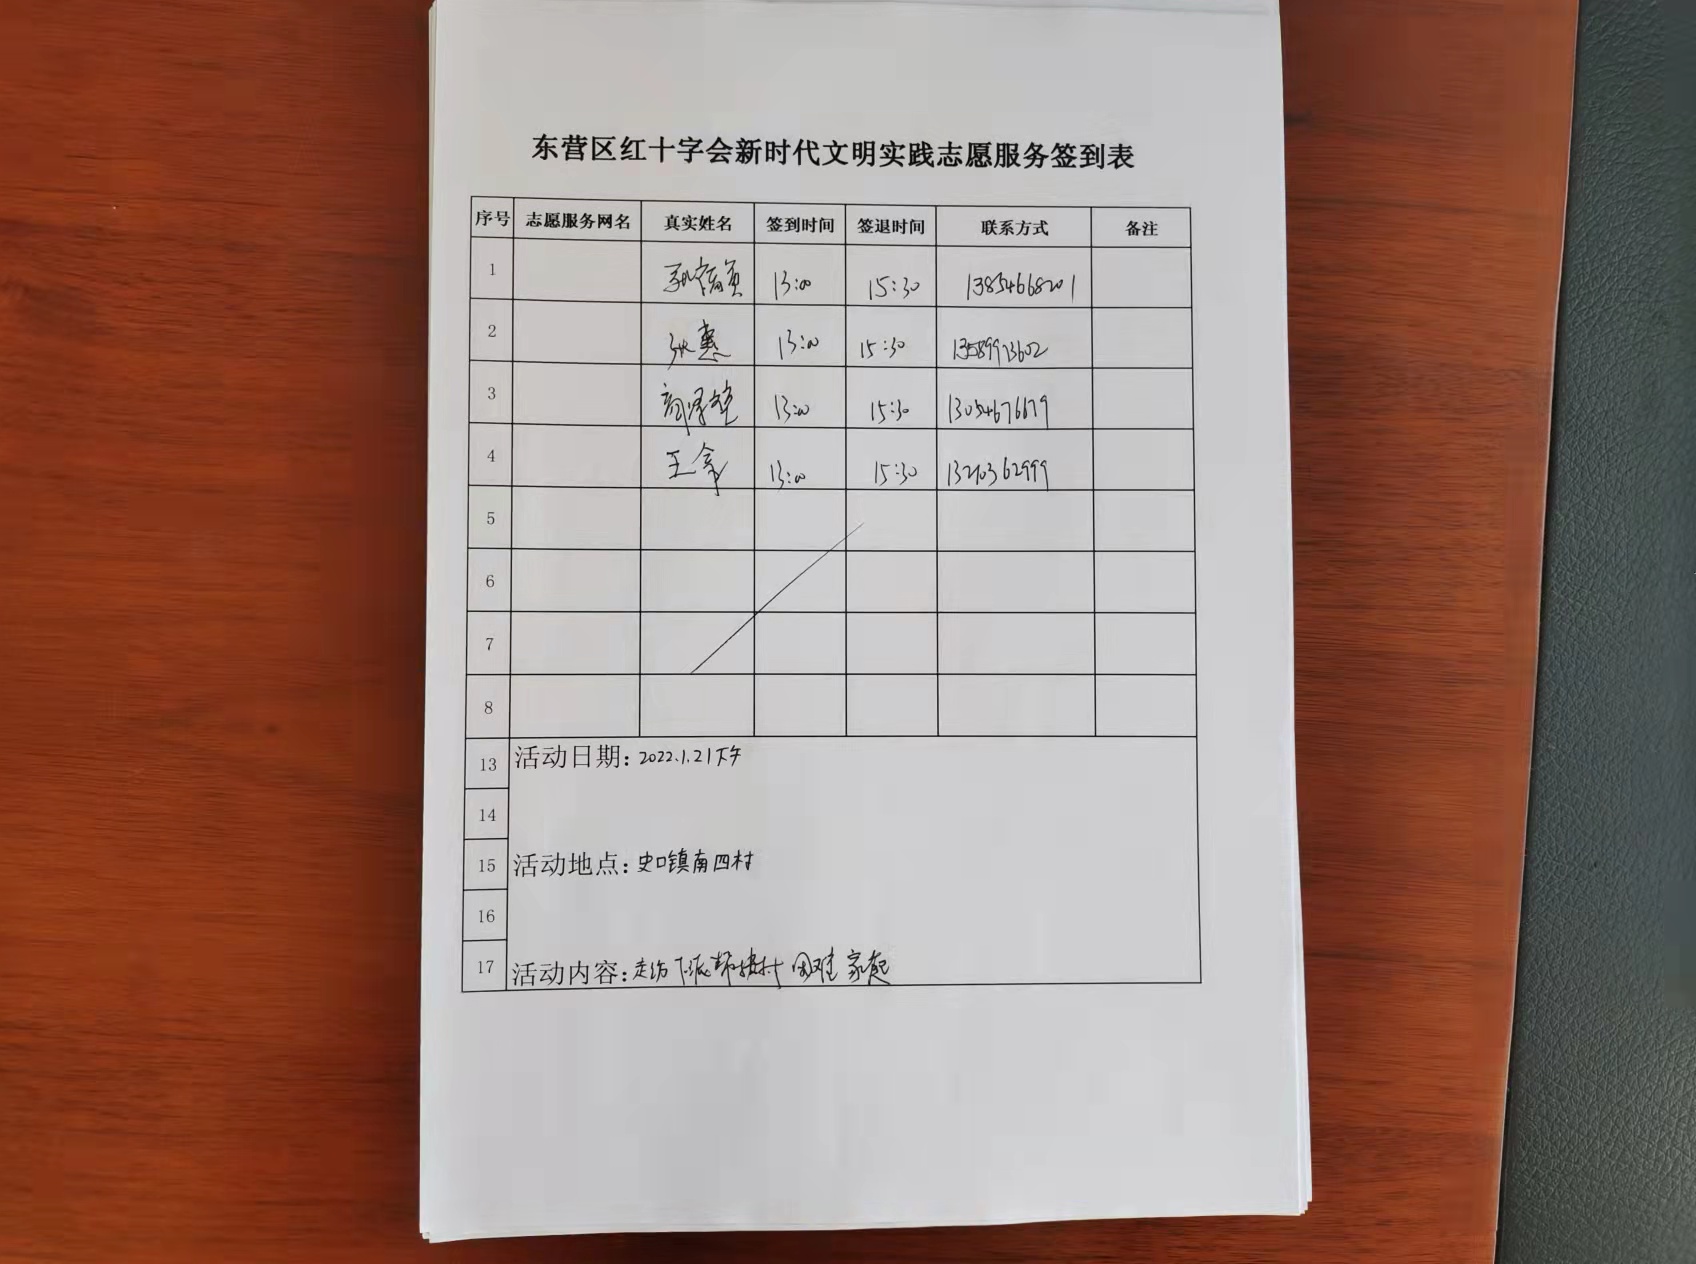 东营区红十字会新时代文明实践志愿服务签到表
序号 志愿服务网名 真实姓名 签到时间 签退时间 联系方式 备注
1 13:00 15:30 13854668201
2 张惠 13:00 15:30 13589973602
3 13:00 15:30 13054676679
4 王 13:00 15:30 13210362999
5
6
7
8
13 活动日期: 2022.1.21下午
14
15 活动地点: 史口镇南四村
16
17 活动内容: 走访下派帮扶村困难家庭